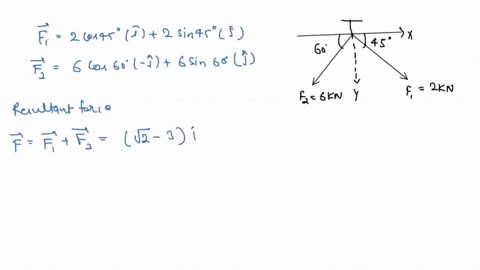 F₁⃗ = 2 cos 45° (î) + 2 sin 45° (ĵ)
F₂⃗ = 6 cos 60° (-î) + 6 sin 60 (ĵ)
Resultant force
F⃗ = F₁⃗ + F₂⃗ = (√2 - 3) î
60° 45° X
F₂ = 6KN Y F₁ = 2KN